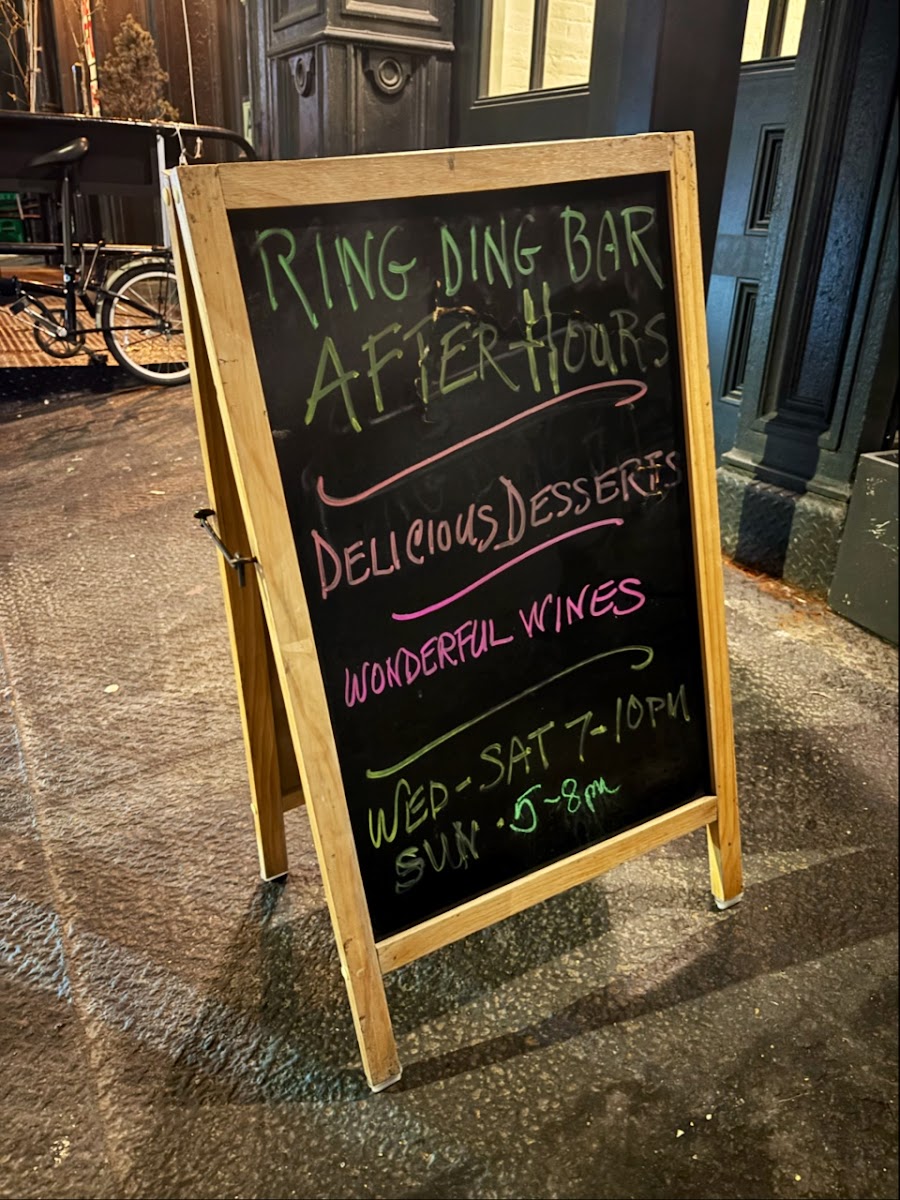 RING DING BAR
AFTER HOURS
DELICIOUS DESSERTS
WONDERFUL WINES
WED-SAT 7-10PM
SUN · 5-8pm